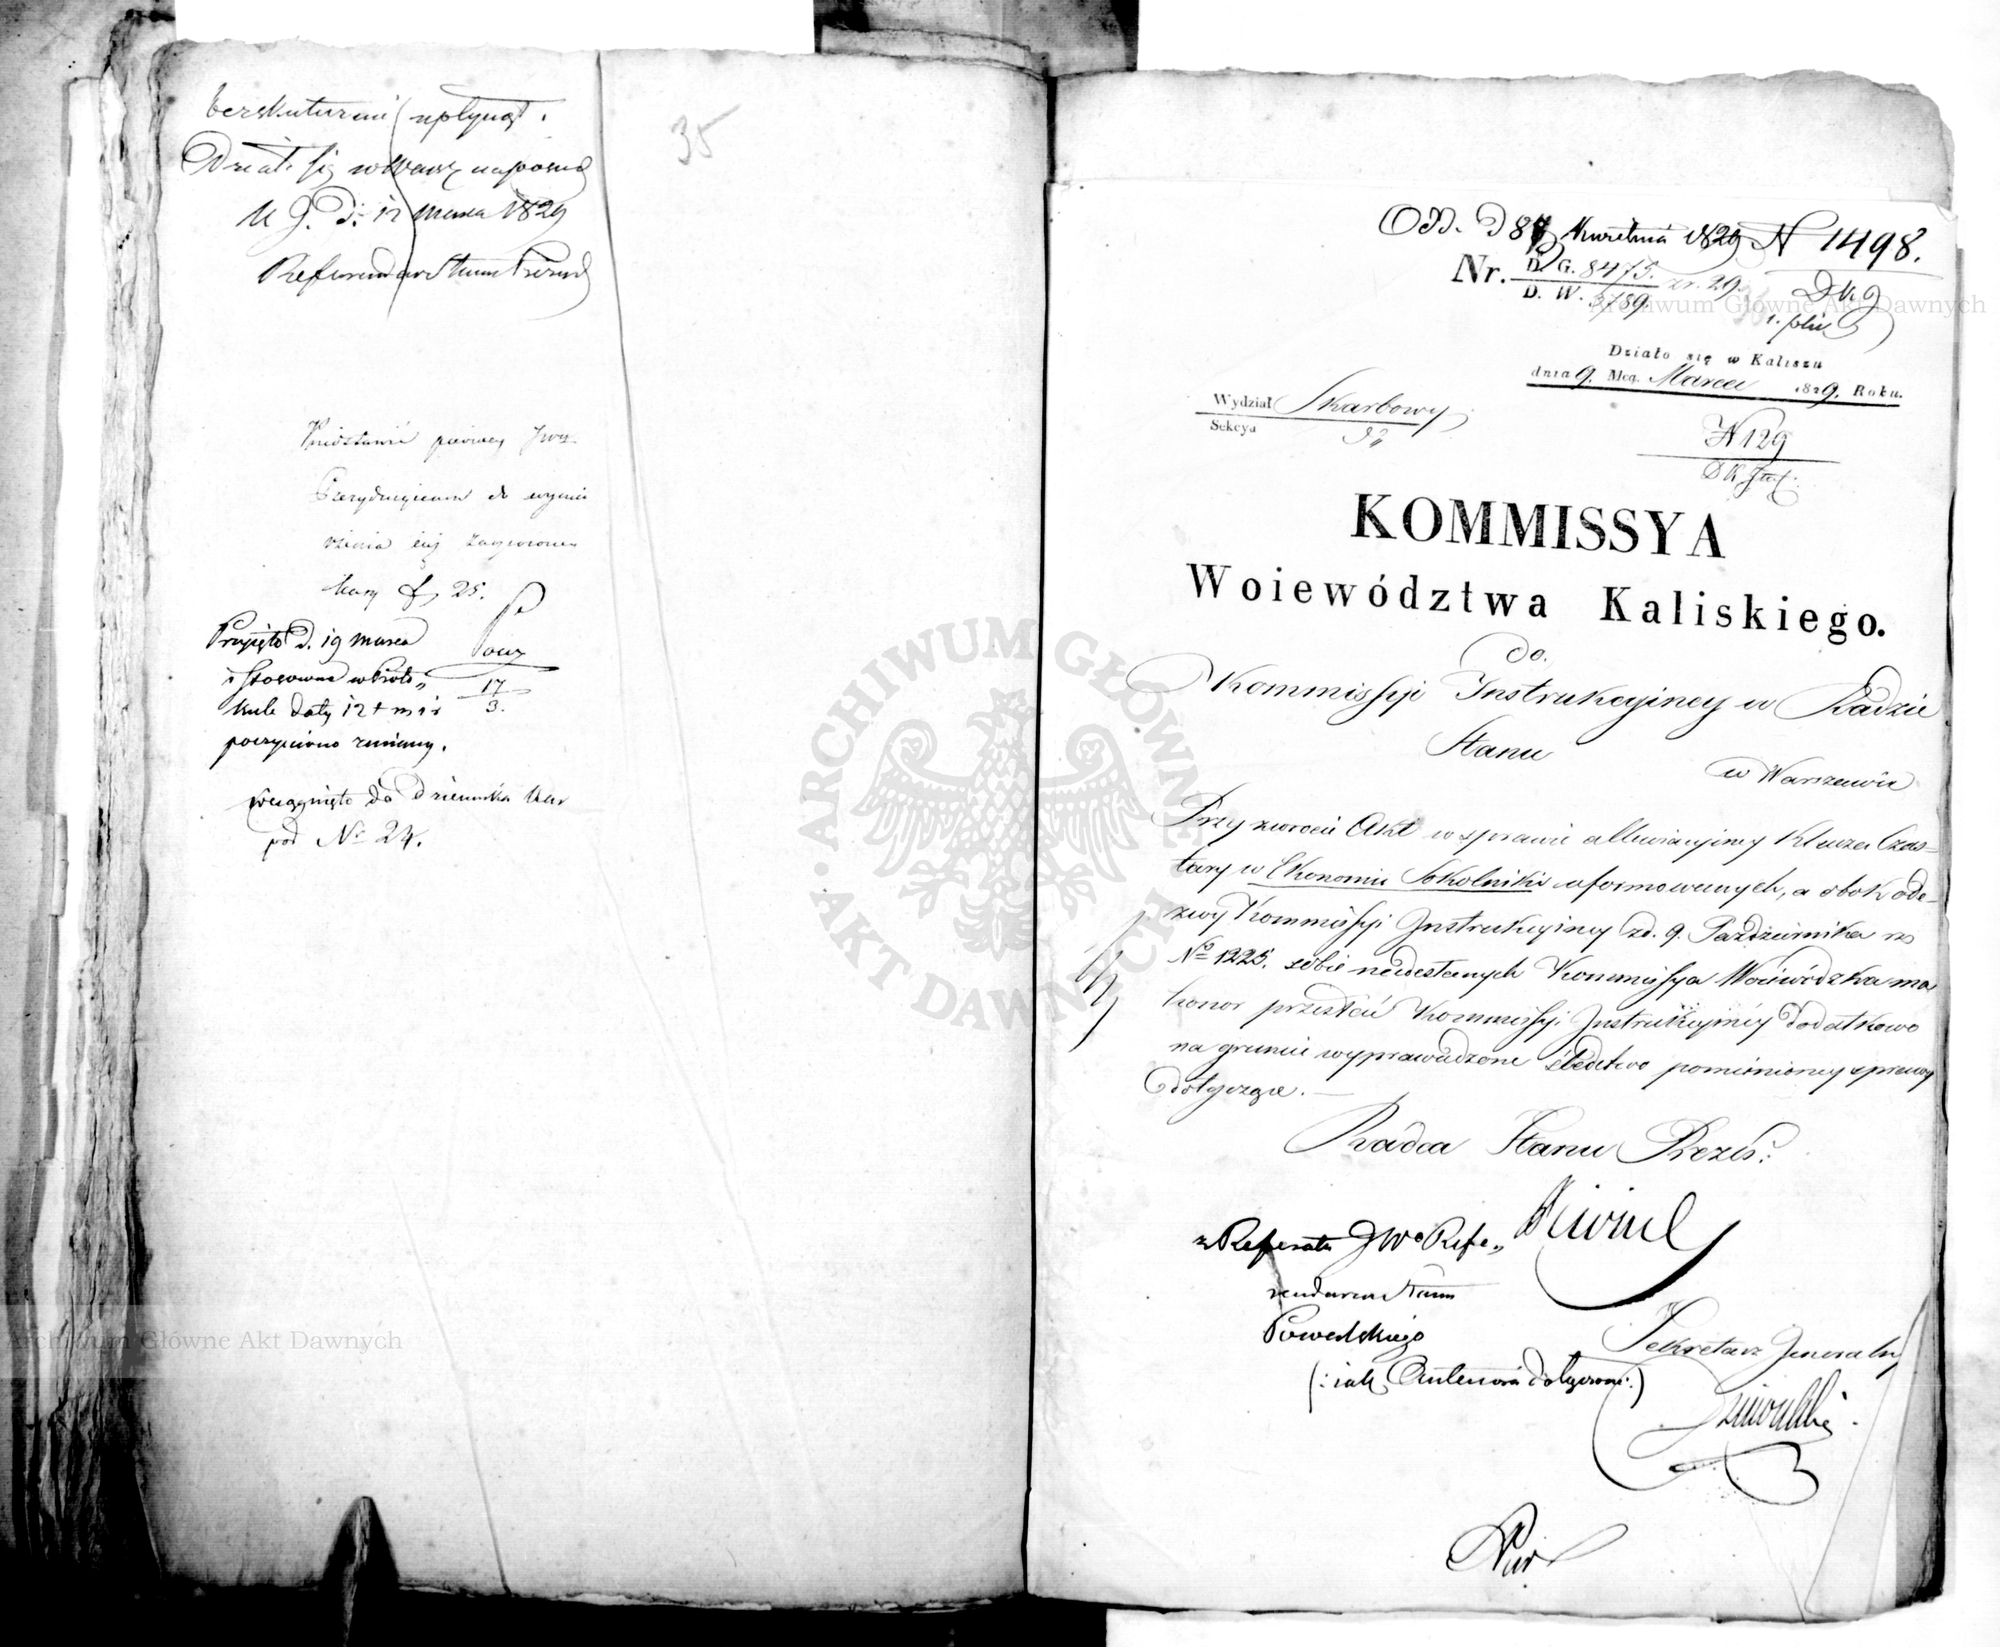 bezskutecznie upłynął.
Działo się w Warsz na posied
K J. D. 12 marca 1829
Referendarz Stanu Prezyd
Przedstawić pierwey Jwu
Prezyduiącemu do wymie
rzenia iey zagrożoney
kary f. 25.
Przyięto d. 19 marca
i stosownie w Proto-
kule daty 12t m i r
poczyniono zmiany.
17
3.
Wciągnięto do Dziennika Kar
pod No 24.
35
Odd. D 8 Kwietnia 1829 N 1498.
Nr. D. G. 8475. 29.
D. W. 3789.
DKJ
1. plik
Działo się w Kaliszu
dnia 9. Mca. Marca 1829. Roku.
Wydział Skarbowy
Sekcya
N 129
KOMMISSYA
Woiewództwa Kaliskiego.
Do.
Kommissyi Instrukcyiney w Radzie
Stanu
w Warszawie
Przy zwrocie Akt w sprawie allewiacyiney Klucza Czas-
tary w Ekonomii Sokolniki uformowanych, a obok ode-
zwy Kommissyi Instrukcyiney zd. 9. Października rz
No 1225. sobie nadesłanych Kommissya Woiewódzka ma
honor przesłać Kommissyi Instrukcyiney dodatkowo
na gruncie wyprowadzone śledztwo pomienioney sprawy
dotyczące. —
Radca Stanu Prezes:
z Referatu JWo Refe-
rendarza Stanu
(: iak Anteriora dotyczące :)
Sekretarz Jeneralny
ARCHIWUM GŁÓWNE AKT DAWNYCH
Archiwum Główne Akt Dawnych
Archiwum Główne Akt Dawnych